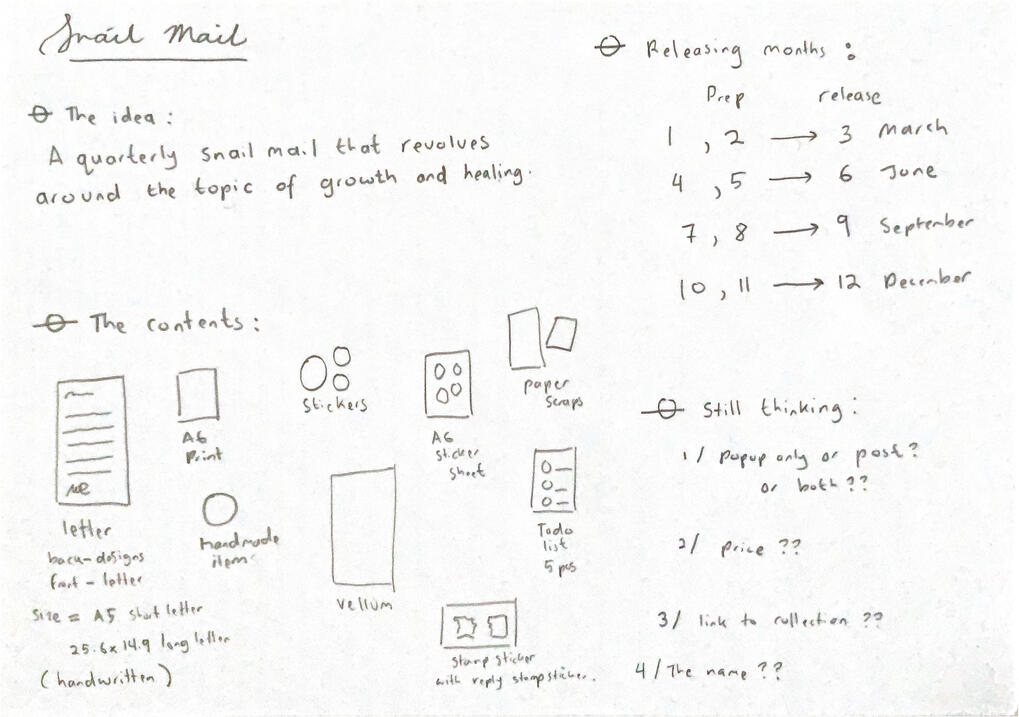 Snail Mail
The idea :
A quarterly snail mail that revolves
around the topic of growth and healing.
The contents :
letter
back - designs
front - letter
size = A5 short letter
25.6 x 14.9 long letter
(handwritten)
me
A6
Print
handmade
items
stickers
vellum
A6
sticker
sheet
paper
scraps
Todo
list
5 pcs
stamp sticker
with reply stamp sticker.
Releasing months :
Prep release
1 , 2 → 3 March
4 , 5 → 6 June
7 , 8 → 9 September
10 , 11 → 12 December
Still thinking :
1 / Popup only or post ?
or both ??
2/ price ??
3/ link to collection ??
4 / The name ??